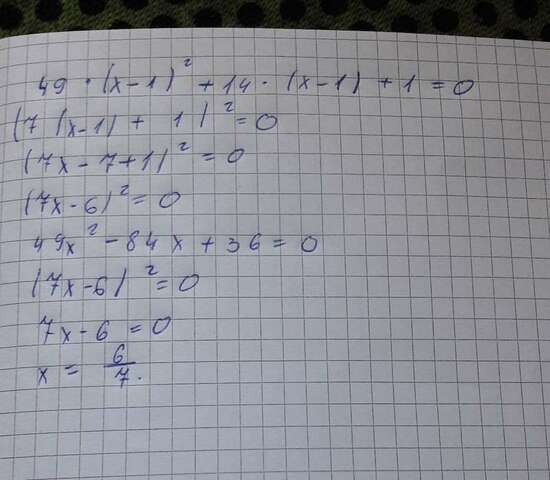 49 · (x-1)² + 14 · (x-1) + 1 = 0
(7 (x-1) + 1)² = 0
(7x - 7+1)² = 0
(7x-6)² = 0
49x² - 84x + 36 = 0
(7x-6)² = 0
7x-6 = 0
x = 6/7.